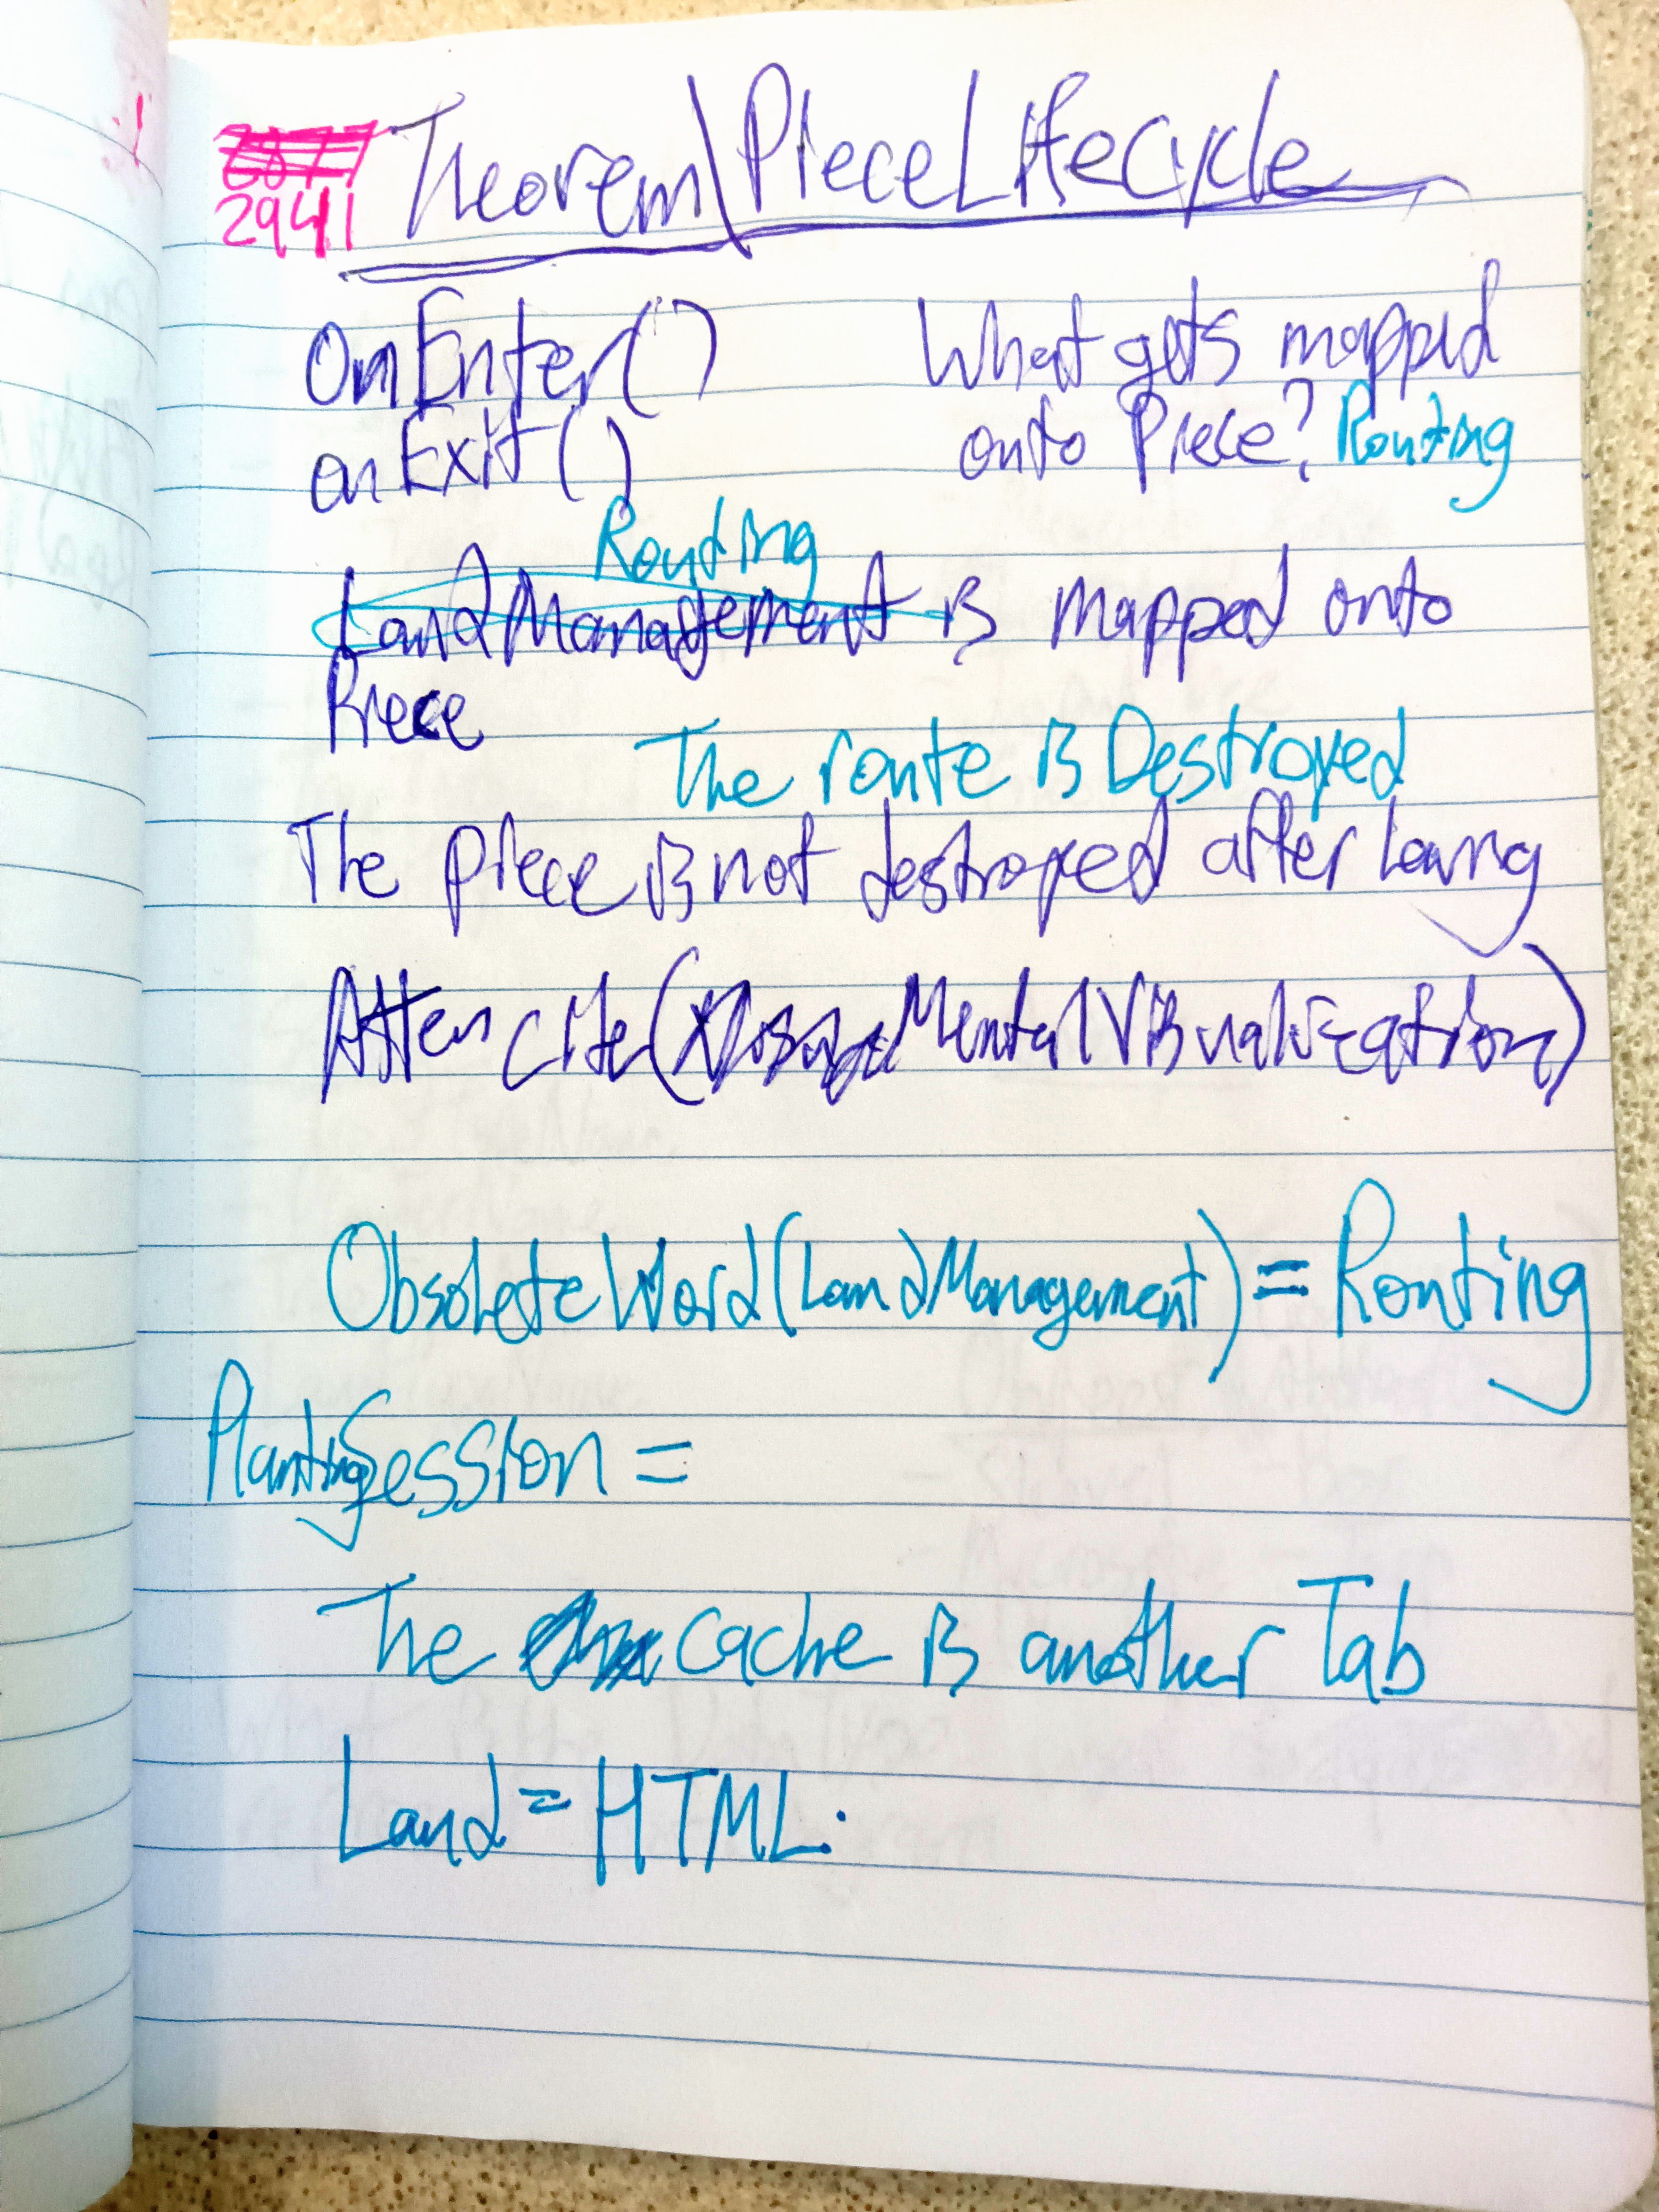 2941 Theorem\PieceLifecycle
OnEnter()
onExit()
What gets mapped
onto Piece? Routing
Routing
LandManagement is mapped onto
Piece
The route is Destroyed
The piece is not destroyed after
(MentalVisualization)
ObsoleteWord(LandManagement) = Routing
PlantingSession =
The cache is another Tab
Land = HTML.